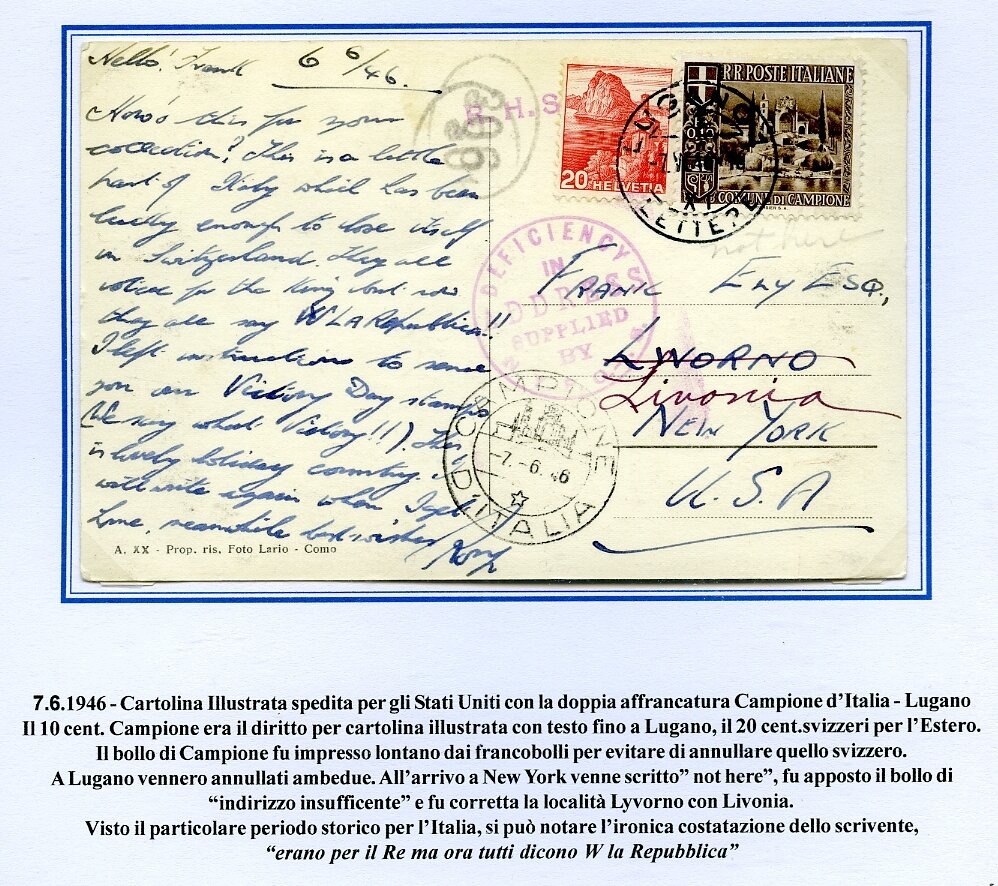 Hello! Frank 6 6/46
How's this for your
collection? This is a little
part of Italy which has been
lucky enough to lose itself
in Switzerland. They all
voted for the King but now
they all say W LA Repubblica!!
I left instructions to send
you on Victory Day stamps
(I say what Victory!!). This
is lovely holiday country. I
will write again when I get
time, meanwhile best wishes
A. XX - Prop. ris. Foto Lario - Como
906
R. H. S
20 HELVETIA
R.R. POSTE ITALIANE
COMUNE DI CAMPIONE
LETTERE
not here
DEFICIENCY
IN
ADDRESS
SUPPLIED
BY
FRANK ELY ESQ.,
LIVORNO
Livonia
NEW YORK
U.S.A
CAMPIONE
-7.-6.46
D'ITALIA
7.6.1946 - Cartolina Illustrata spedita per gli Stati Uniti con la doppia affrancatura Campione d'Italia - Lugano
Il 10 cent. Campione era il diritto per cartolina illustrata con testo fino a Lugano, il 20 cent.svizzeri per l'Estero.
Il bollo di Campione fu impresso lontano dai francobolli per evitare di annullare quello svizzero.
A Lugano vennero annullati ambedue. All'arrivo a New York venne scritto” not here”, fu apposto il bollo di
“indirizzo insufficente” e fu corretta la località Lyvorno con Livonia.
Visto il particolare periodo storico per l'Italia, si può notare l'ironica costatazione dello scrivente,
“erano per il Re ma ora tutti dicono W la Repubblica”